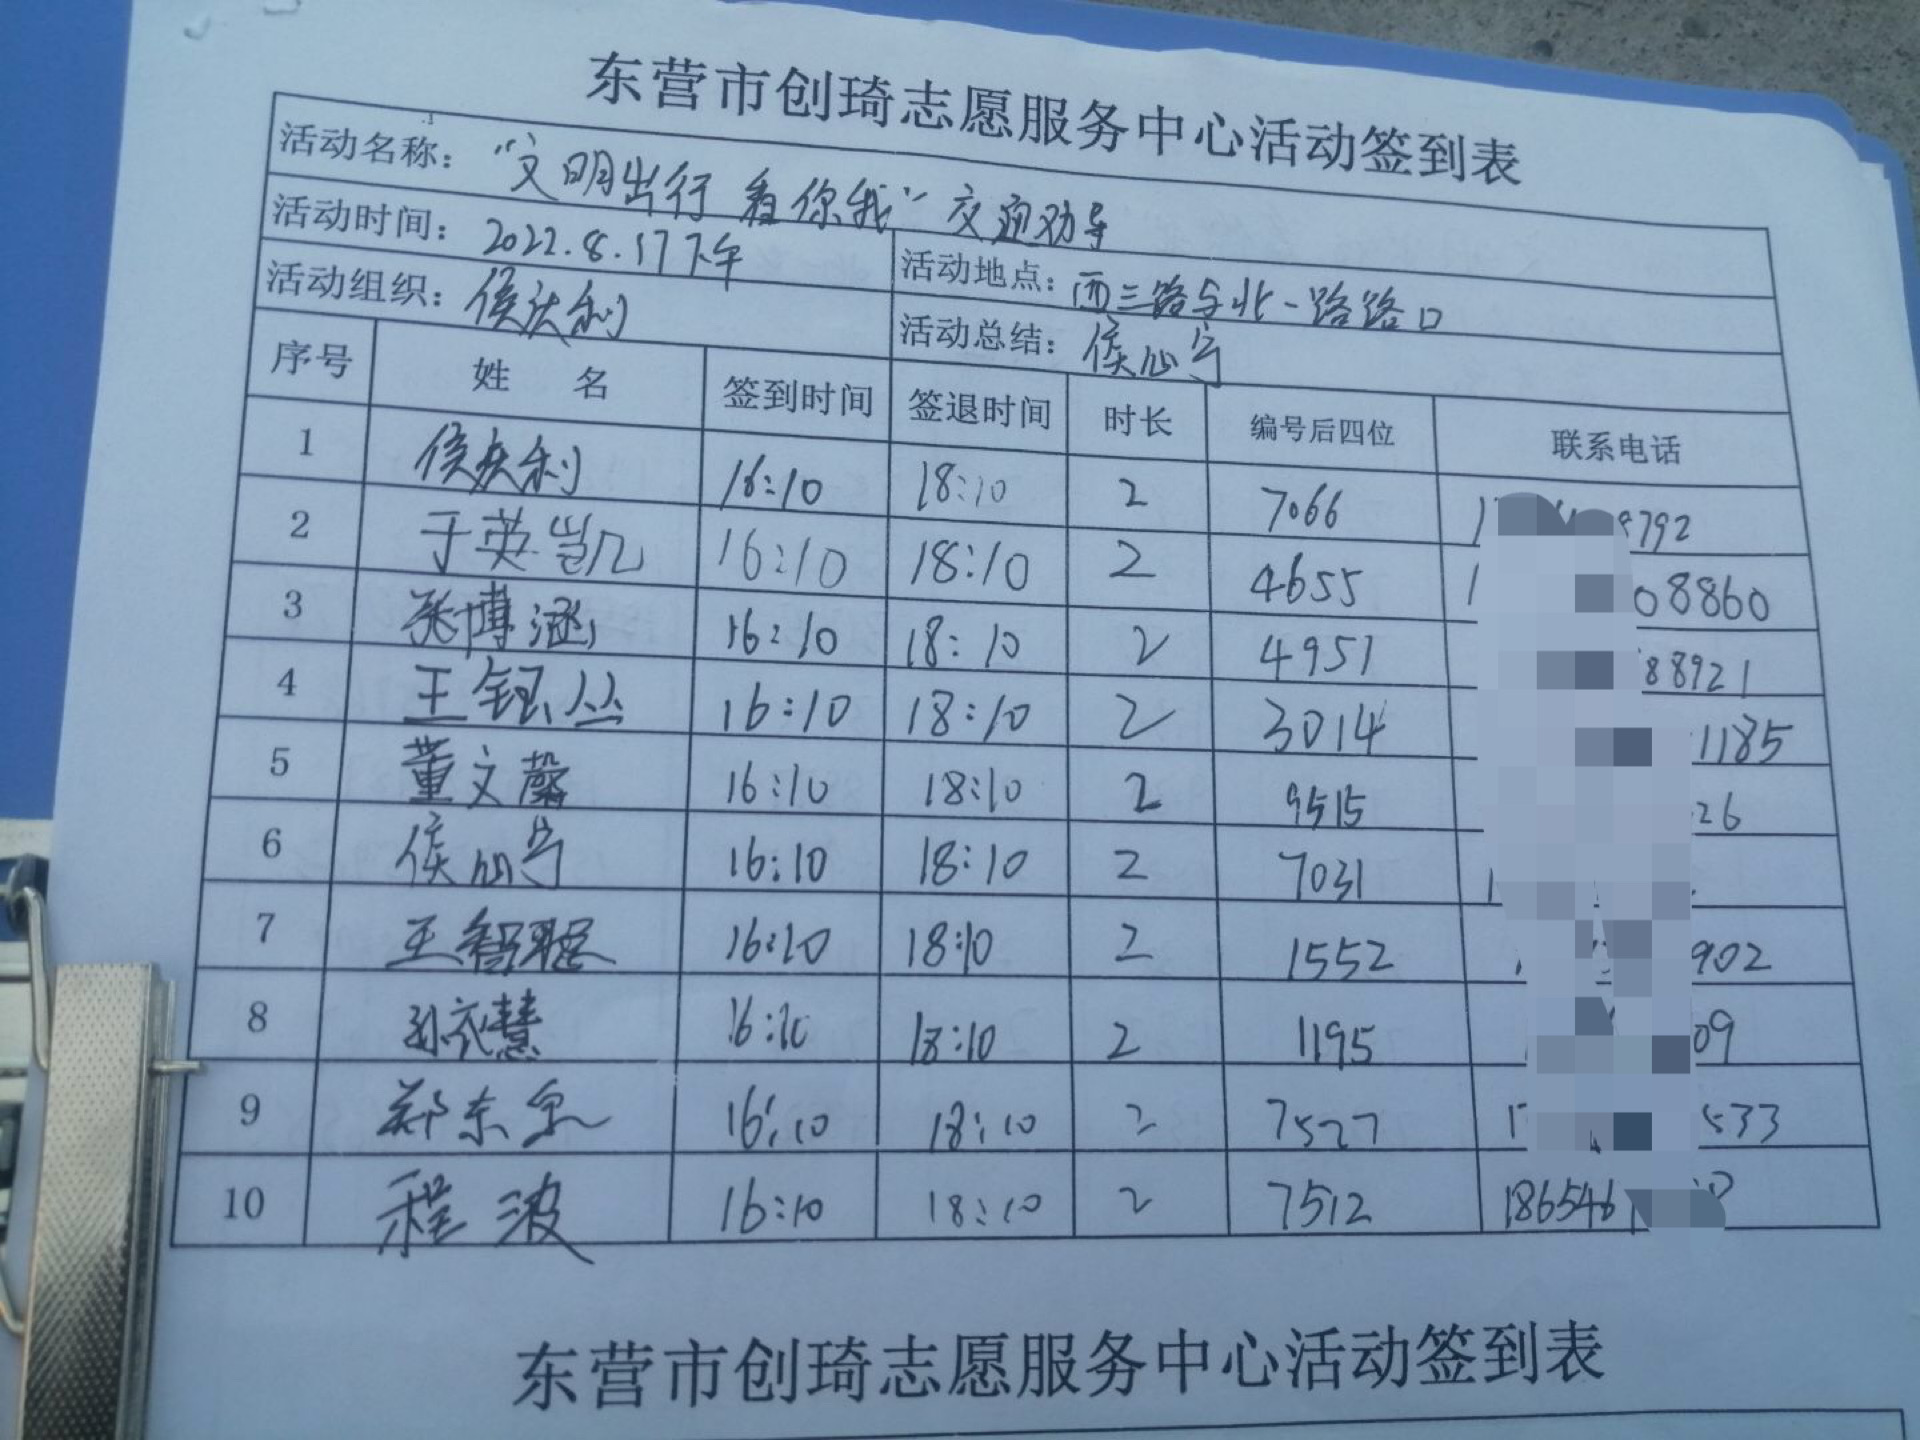 东营市创琦志愿服务中心活动签到表
活动名称：“文明出行 看你我”交通劝导
活动时间：2022.8.17下午 活动地点：西三路与北一路路口
活动组织：侯庆利 活动总结：侯心宁
序号 姓 名 签到时间 签退时间 时长 编号后四位 联系电话
1 侯庆利 16:10 18:10 2 7066 8792
2 于英凯 16:10 18:10 2 4655 08860
3 张博涵 16:10 18:10 2 4951 88921
4 王钰丛 16:10 18:10 2 3014 1185
5 董文馨 16:10 18:10 2 9515 26
6 侯心宁 16:10 18:10 2 7031
7 王智聪 16:10 18:10 2 1552 902
8 孙衣慧 16:10 18:10 2 1195 09
9 郑东 16:10 18:10 2 7527 533
10 程波 16:10 18:10 2 7512 186546
东营市创琦志愿服务中心活动签到表